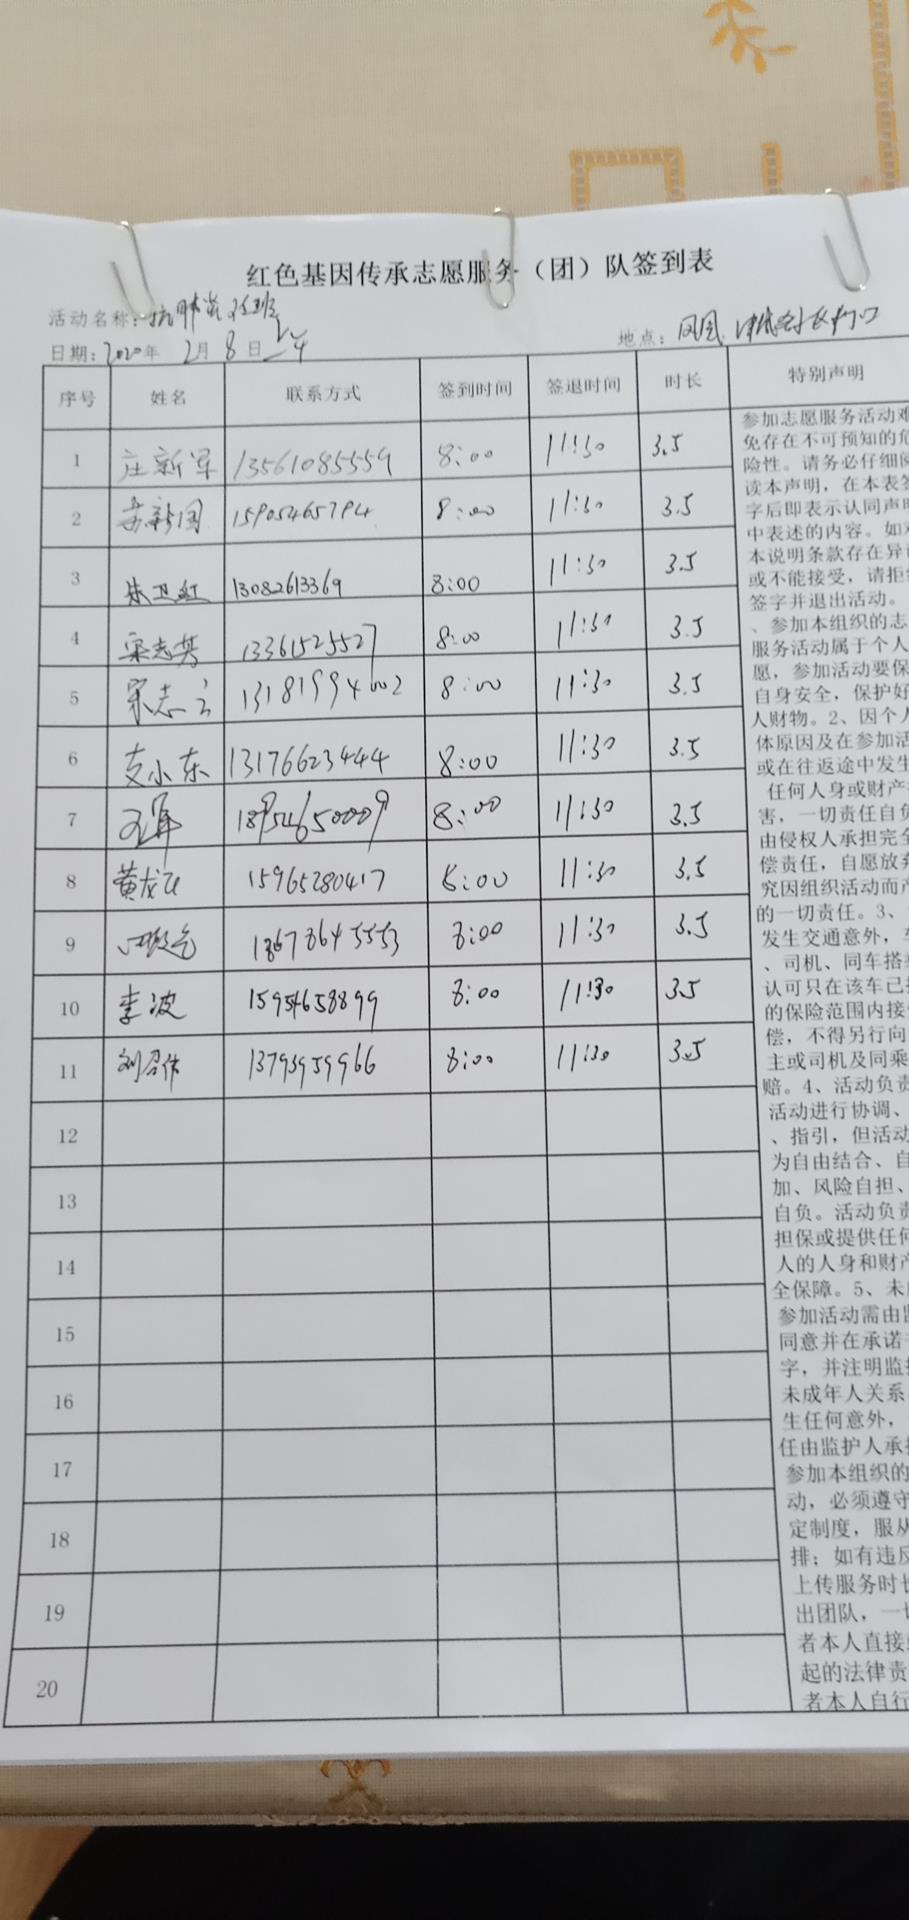 红色基因传承志愿服务（团）队签到表
活动名称：抗肺炎值班
日期：2020年 2月 8日 上午 地点：凤凰
序号 姓名 联系方式 签到时间 签退时间 时长 特别声明
1 庄新军 13561085559 8:00 11:30 3.5
2 苏新国 15905465794 8:00 11:30 3.5
3 朱卫红 13082613369 8:00 11:30 3.5
4 宋志英 13361525527 8:00 11:30 3.5
5 宋志云 13181994002 8:00 11:30 3.5
6 支小东 13176623444 8:00 11:30 3.5
7 18954650009 8:00 11:30 3.5
8 黄龙飞 15965280417 8:00 11:30 3.5
9 18678645553 8:00 11:30 3.5
10 李波 15954658899 8:00 11:30 3.5
11 刘召伟 13793959966 8:00 11:30 3.5
12
13
14
15
16
17
18
19
20
参加志愿服务活动难
免存在不可预知的危
险性。请务必仔细阅
读本声明，在本表签
字后即表示认同声明
中表述的内容。如对
本说明条款存在异议
或不能接受，请拒绝
签字并退出活动。
、参加本组织的志
服务活动属于个人
愿，参加活动要保
自身安全，保护好
人财物。2、因个人
体原因及在参加活
或在往返途中发生
任何人身或财产
害，一切责任自负
由侵权人承担完全
偿责任，自愿放弃
究因组织活动而产
的一切责任。3、
发生交通意外，车
、司机、同车搭乘
认可只在该车已投
的保险范围内接受
偿，不得另行向
主或司机及同乘
赔。4、活动负责
活动进行协调、
、指引，但活动
为自由结合、自
加、风险自担、
自负。活动负责
担保或提供任何
人的人身和财产
全保障。5、未成
参加活动需由监
同意并在承诺书
字，并注明监护
未成年人关系
生任何意外，
任由监护人承担
参加本组织的
动，必须遵守
定制度，服从
排；如有违反
上传服务时长
出团队，一切
者本人直接或
起的法律责
者本人自行